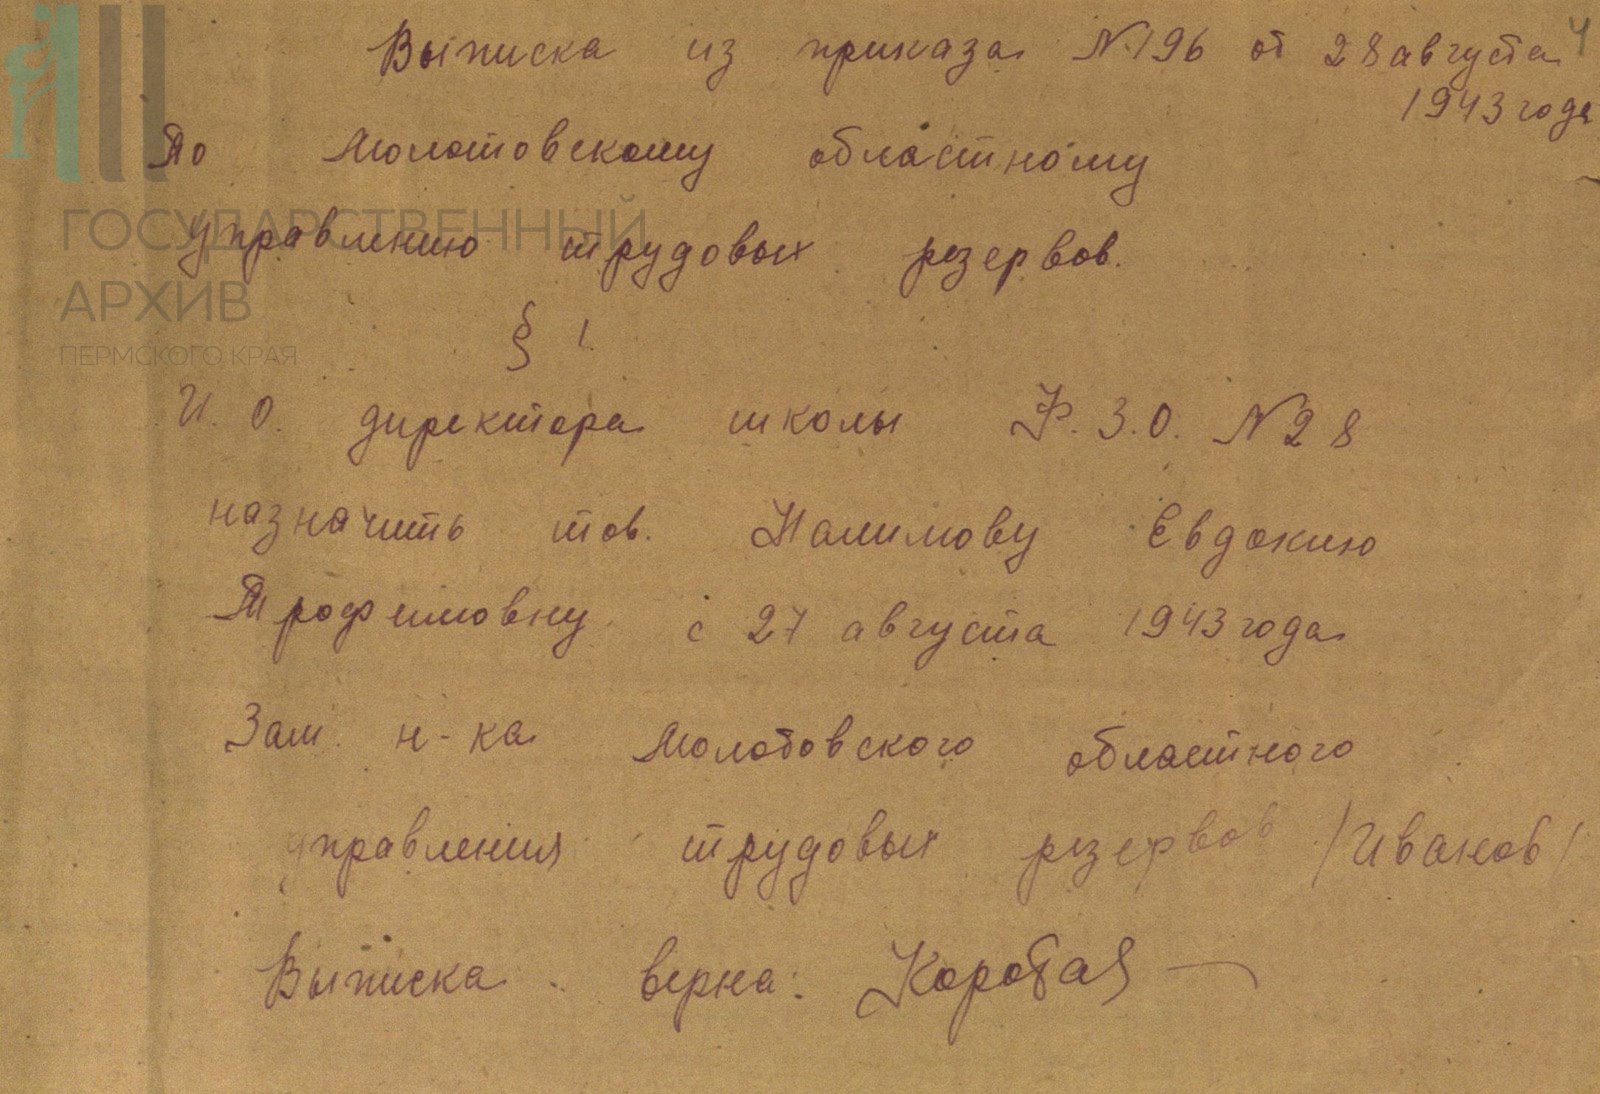 Выписка из приказа N 196 от 28 августа 4
1943 года
По Молотовскому областному
управлению трудовых резервов.
§ 1.
И. О. директора школы Ф. З. О. N 28
назначить тов. Налимову Евдокию
Трофимовну с 27 августа 1943 года
Зам. н-ка Молотовского областного
управления трудовых резервов /Иванов/
Выписка верна:
ГОСУДАРСТВЕННЫЙ
АРХИВ
ПЕРМСКОГО КРАЯ